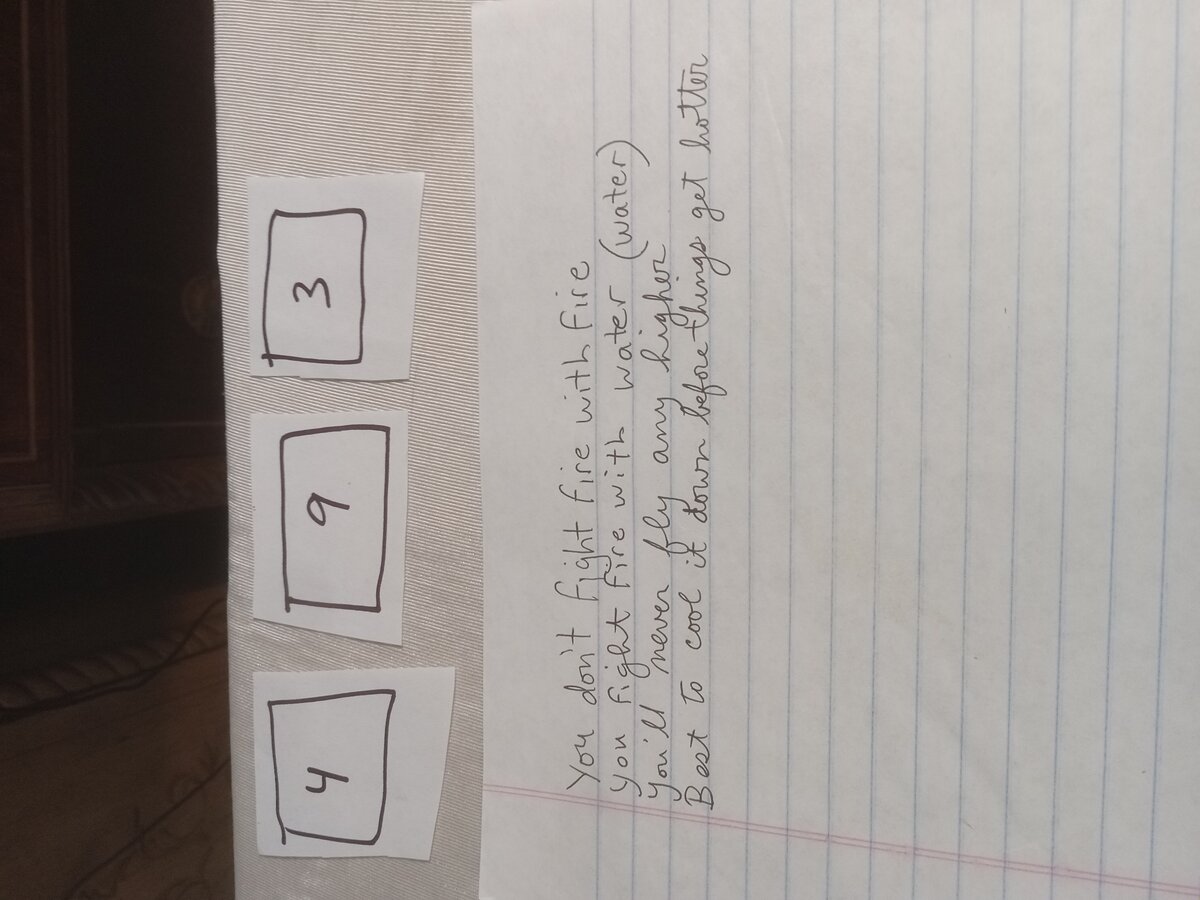 4 9 3
You don't fight fire with fire
you fight fire with water (water)
you'll never fly any higher
Best to cool it down before things get hotter